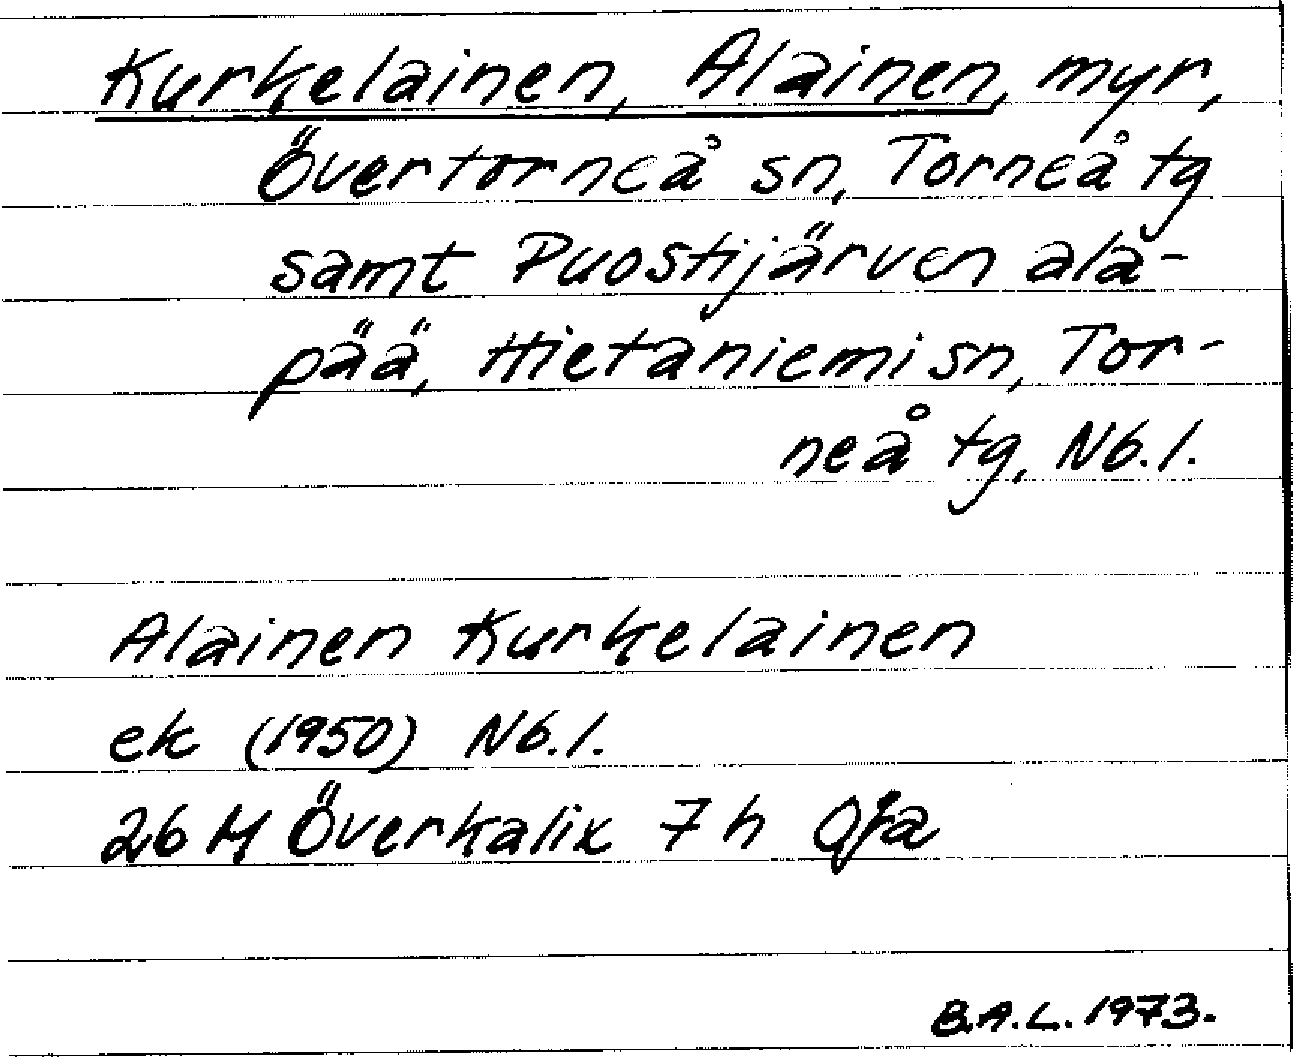 Kurkelainen, Alainen, myr,
Övertorneå sn, Torneå tg
samt Puostijärven ala-
pää, Hietaniemi sn, Tor-
neå tg, Nb.l.
Alainen Kurkelainen
ek (1950) Nb.l.
26 M Överkalix 7 h
B.A.L. 1973.